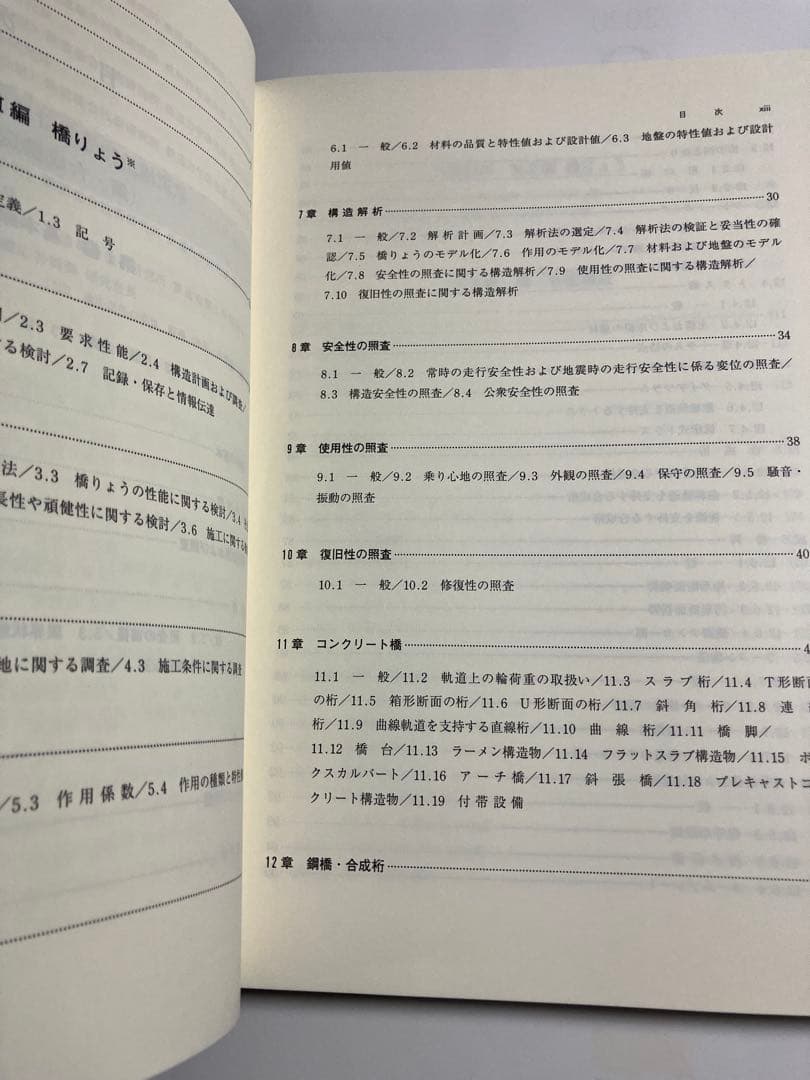 編 橋りょう※
定義/1.3 記号
/2.3 要求性能/2.4 構造計画および調査/
する検討/2.7 記録・保存と情報伝達
法/3.3 橋りょうの性能に関する検討/3.4
長性や頑健性に関する検討/3.6 施工に関する
地に関する調査/4.3 施工条件に関する調査
/5.3 作用係数/5.4 作用の種類と特性
目次 xiii
6.1 一般/6.2 材料の品質と特性値および設計値/6.3 地盤の特性値および設計
用値
7章 構造解析 30
7.1 一般/7.2 解析計画/7.3 解析法の選定/7.4 解析法の検証と妥当性の確
認/7.5 橋りょうのモデル化/7.6 作用のモデル化/7.7 材料および地盤のモデル
化/7.8 安全性の照査に関する構造解析/7.9 使用性の照査に関する構造解析/
7.10 復旧性の照査に関する構造解析
8章 安全性の照査 34
8.1 一般/8.2 常時の走行安全性および地震時の走行安全性に係る変位の照査/
8.3 構造安全性の照査/8.4 公衆安全性の照査
9章 使用性の照査 38
9.1 一般/9.2 乗り心地の照査/9.3 外観の照査/9.4 保守の照査/9.5 騒音・
振動の照査
10章 復旧性の照査 40
10.1 一般/10.2 修復性の照査
11章 コンクリート橋 4
11.1 一般/11.2 軌道上の輪荷重の取扱い/11.3 スラブ桁/11.4 T形断面
の桁/11.5 箱形断面の桁/11.6 U形断面の桁/11.7 斜角桁/11.8 連
桁/11.9 曲線軌道を支持する直線桁/11.10 曲線桁/11.11 橋脚/
11.12 橋台/11.13 ラーメン構造物/11.14 フラットスラブ構造物/11.15 ボ
クスカルバート/11.16 アーチ橋/11.17 斜張橋/11.18 プレキャストコ
クリート構造物/11.19 付帯設備
12章 鋼橋・合成桁